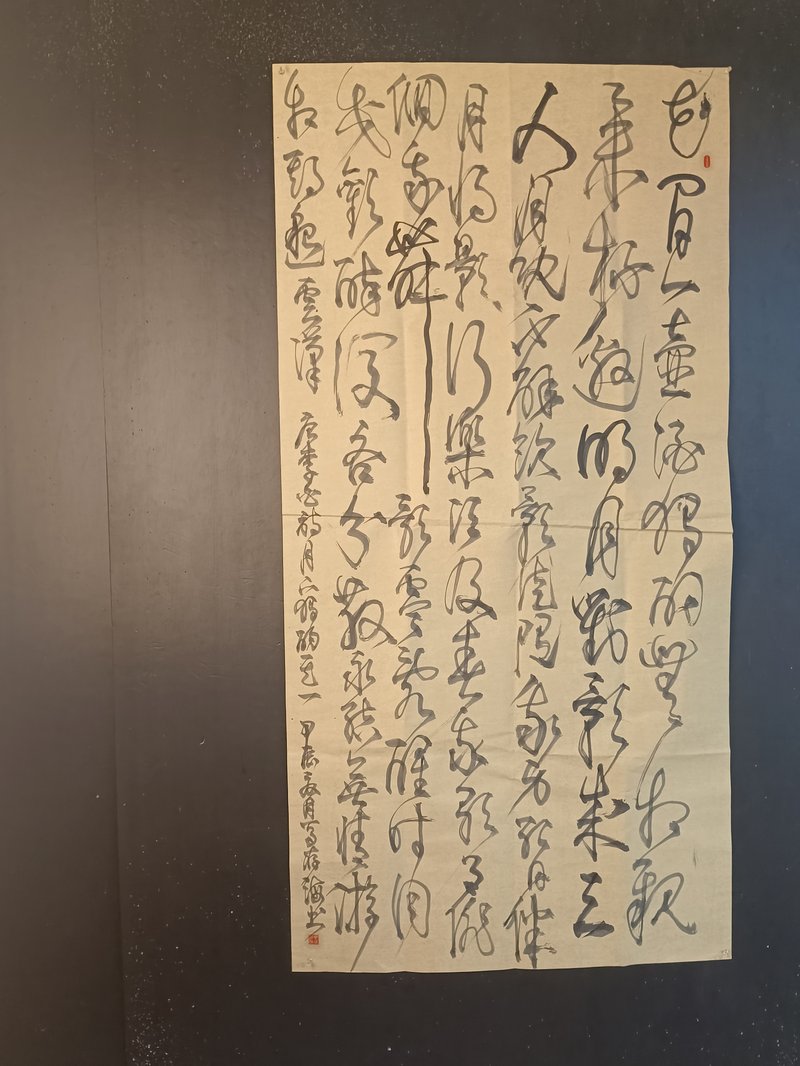 花間一壺酒獨酌無相親
舉杯邀明月對影成三
人月既不解飲影徒隨我身暫伴
月將影行樂須及春我歌月徘
徊我舞影零亂醒時同
交歡醉後各分散永結無情游
相期邈雲漢 唐李白詩月下獨酌其一 甲辰夏月海書